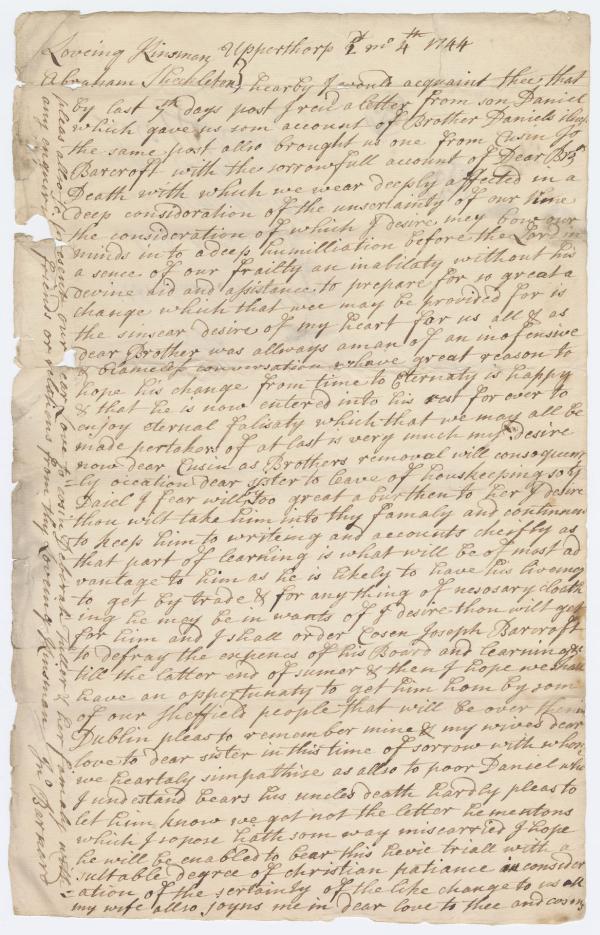 Loveing Kinsman Upperthorp 1 mo 4th 1744
Abraham Shackleton hearby I would acquaint thee that
by last 4th days post I recd a letter from son Daniel
which gave us som account of Brother Daniels
the same post allso brought us one from Cusin Jo
Barcroft with the sorrowfull account of Dear Bro
Death with which we wear deeply affected in a
deep consideration of the uncertainty of our time
the consideration of which I desire mey bow our
minds in to a deep humilliation before the Lord in
a sence of our frailty an inabilaty without his
devine aid and assistance to prepare for so great a
change which that wee may be provided for is
the sinsear desire of my heart for us all & as
dear Brother was allways a man of an inofensive
& blameless conversation whave great reason to
hope his change from time to Eternaty is happy
& that he is now entered into his rest for over to
enjoy eternal falisaty which that we may all be
made pertaker of at last is very much my Desire
now dear Cusin as Brothers removal will consequan
ly ocation dear sister to leave of houskeeping so
Daiel I fear will too great a burthen to her I desire
thou wilt take him into thy famaly and continue
to keep him to writeing and accounts cheifly as
that part of learning is what will be of most ad
vantage to him as he is likely to have his liveing
to get by trade & for anything of nesosary cloath
ing he may be in wants of I desire thou will get
for him and I shall order Cosen Joseph Barcroft
to defray the expence of his Board and learning
till the latter end of sumer & then I hope we shall
have an oppertunaty to get him hom by som
of our Sheffield people that will be over then
Dublin pleas to remember mine & my wives dear
love to dear sister in this time of sorrow with whom
we heartaly simpathise as allso to poor Daniel who
I undestand bears his uncles death hardly pleas to
let him know we got not the letter he mentons
which I sopose hath som way miscarred I hope
he will be enabled to bear this hevie triall with a
suitable degree of christian patiance in consider
ation of the sertainty of the like change to us all
my wife allso joyns me in dear love to thee and
pleas allso to present our dear Love to cosin Deborah Fuller & her famaly with
any enquiring friends or relations from thy Loveing Kinsman Jno Barnard